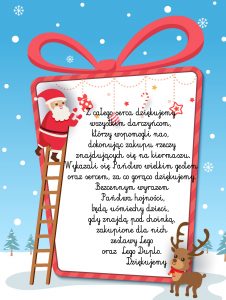 Z całego serca dziękujemy
wszystkim darczyńcom,
którzy wspomogli nas,
dokonując zakupu rzeczy
znajdujących się na kiermaszu.
Wykazali się Państwo wielkim gestem
oraz sercem, za co gorąco dziękujemy.
Bezcennym wyrazem
Państwa hojności,
będą uśmiechy dzieci,
gdy znajdą pod choinką,
zakupione dla nich
zestawy Lego
oraz Lego Duplo.
Dziękujemy